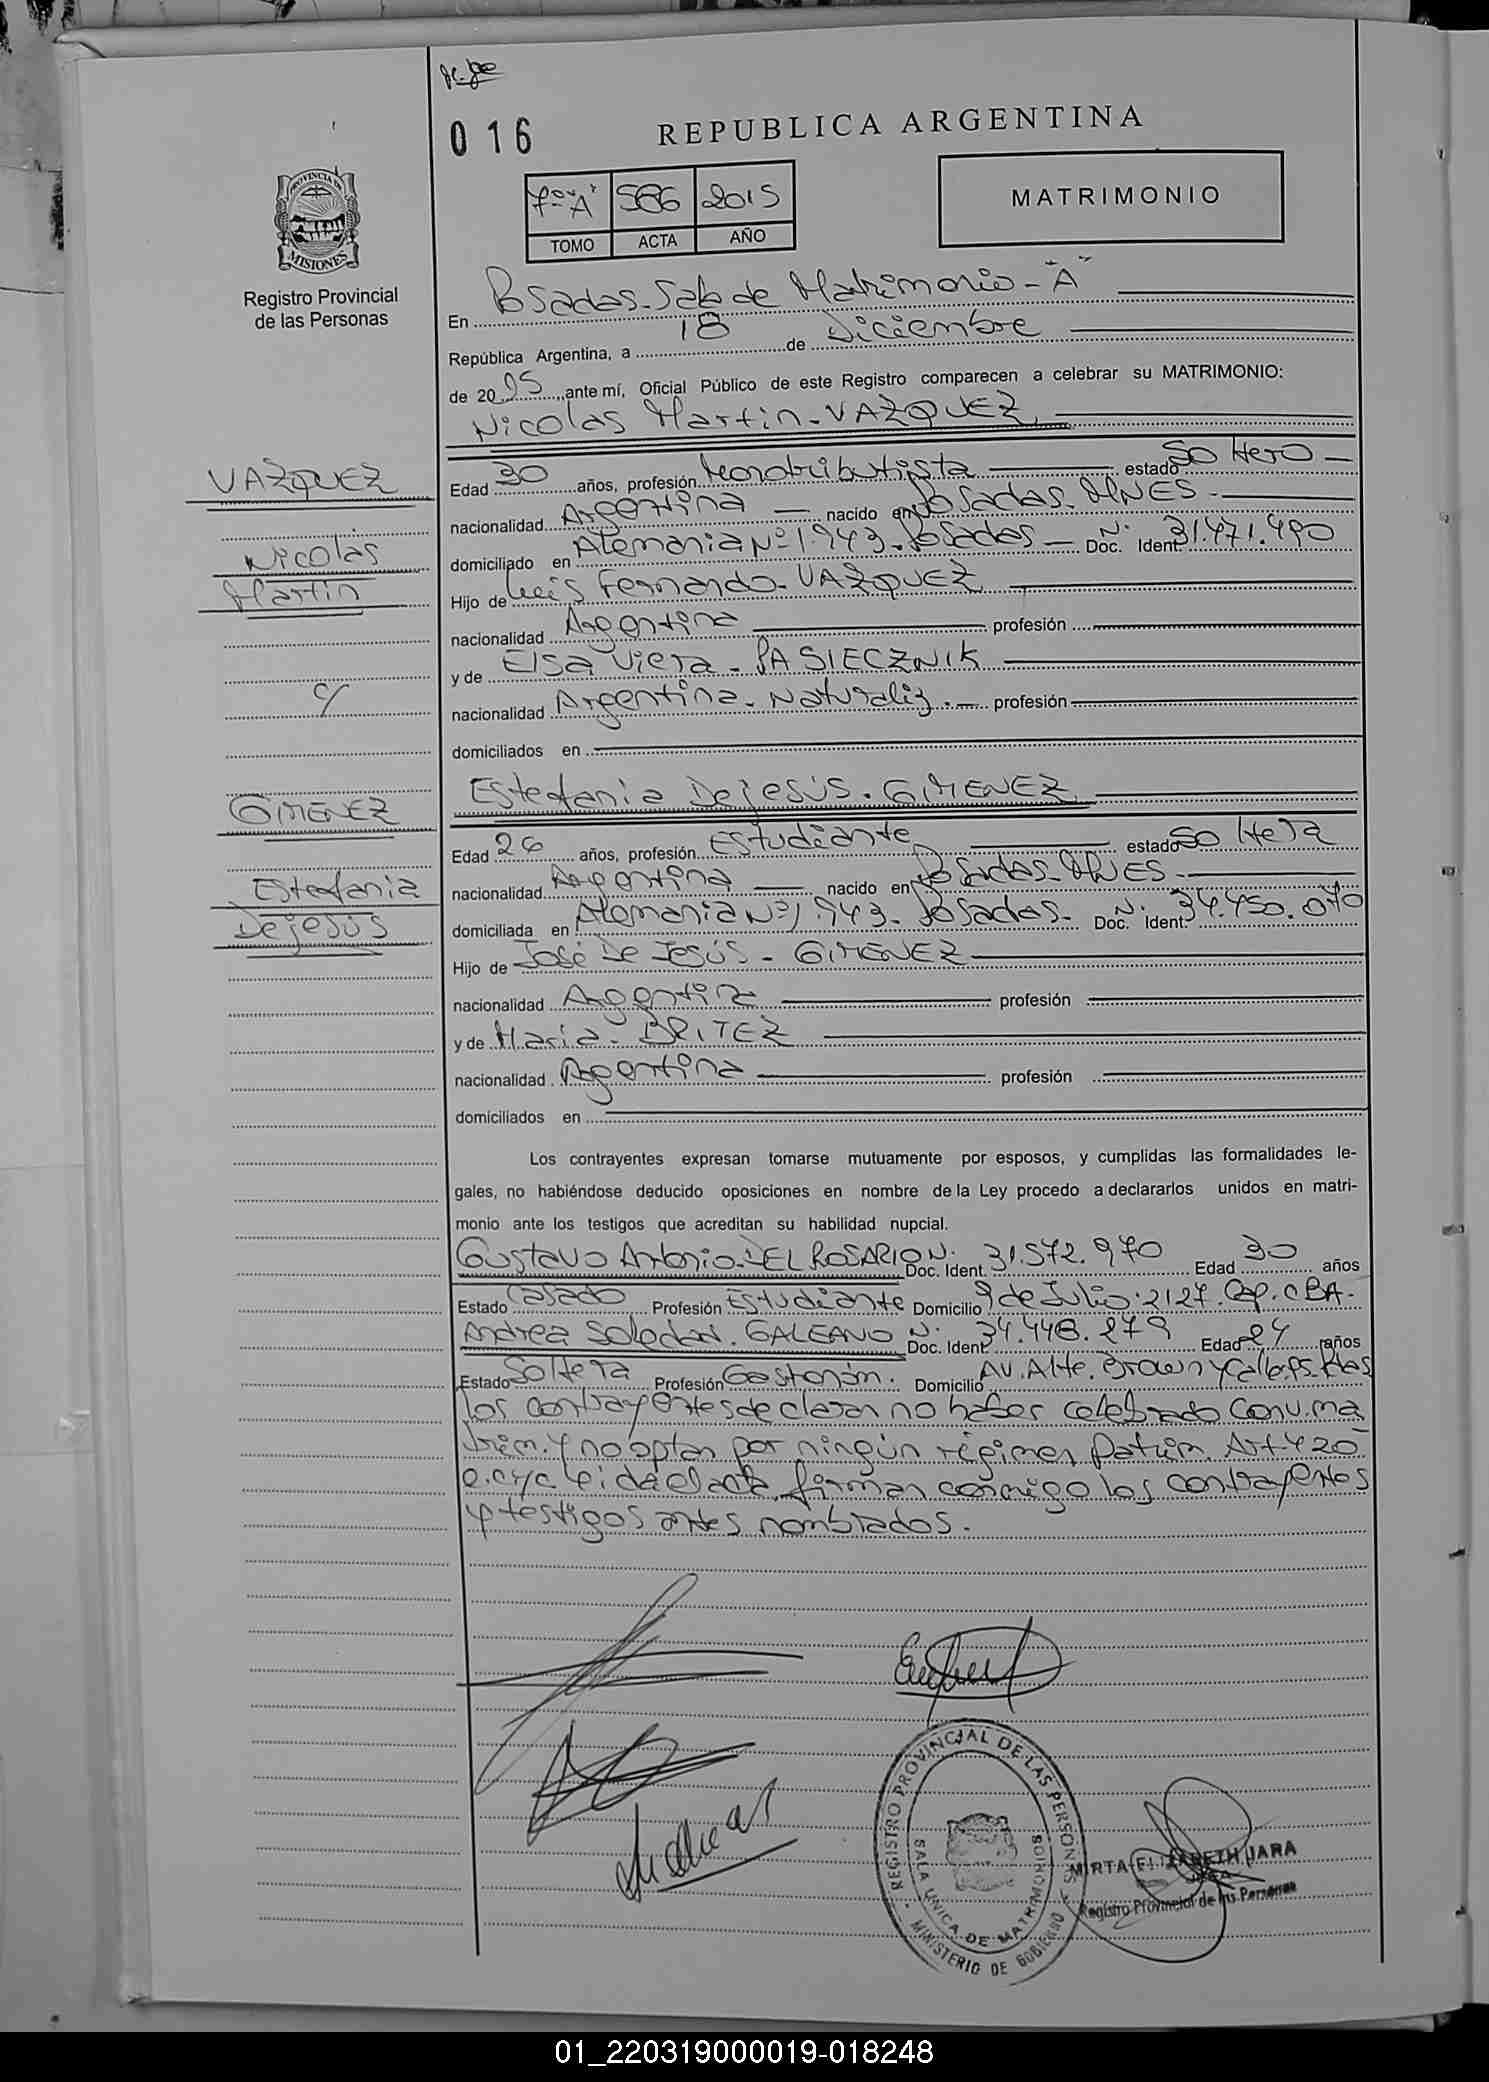 016
REPUBLICA ARGENTINA
PROVINCIA DE
MISIONES
Registro Provincial
de las Personas
7º "A" 586 2015
TOMO ACTA AÑO
MATRIMONIO
En Posadas-Sala de Matrimonio-"A"
República Argentina, a 18 de Diciembre
de 2015, ante mí, Oficial Público de este Registro comparecen a celebrar su MATRIMONIO:
Nicolas Martin-VAZQUEZ
VAZQUEZ
Nicolas
Martin
c/
GIMENEZ
Estefania
Dejesús
Edad 30 años, profesión Monotributista estado Soltero
nacionalidad Argentina nacido en Posadas. MNES.
domiciliado en Alemania Nº 1.943. Posadas Doc. Ident. Nº 31.471.490
Hijo de Luis Fernando-VAZQUEZ
nacionalidad Argentina profesión
y de Elsa Viera-PASIECZNIK
nacionalidad Argentina. Naturaliz. profesión
domiciliados en
Estefania Dejesús. GIMENEZ
Edad 26 años, profesión Estudiante estado Soltera
nacionalidad Argentina nacido en Posadas-MNES.
domiciliada en Alemania Nº 1.943. Posadas. Doc. Ident. Nº 34.450.070
Hijo de José De Jesús - GIMENEZ
nacionalidad Argentina profesión
y de Maria-BRITEZ
nacionalidad Argentina profesión
domiciliados en
Los contrayentes expresan tomarse mutuamente por esposos, y cumplidas las formalidades le-
gales, no habiéndose deducido oposiciones en nombre de la Ley procedo a declararlos unidos en matri-
monio ante los testigos que acreditan su habilidad nupcial.
Gustavo Antonio-DEL ROSARIO Doc. Ident. Nº 31.572.970 Edad 30 años
Estado Casado Profesión Estudiante Domicilio 9 de Julio. 2127. Cap. CBA.
Andrea Soledad. GALEANO Doc. Ident. Nº 34.448.279 Edad 24 años
Estado Soltera Profesión Gastronóm. Domicilio Av. Alte. Brown y Calle
los contrayentes declaran no haber celebrado conv. ma
trim. y no optan por ningún régimen Patrim. Art. 420
e. CYC leida el acta, firman conmigo los contrayentes
y testigos antes nombrados.
REGISTRO PROVINCIAL DE LAS PERSONAS
SALA UNICA DE MATRIMONIOS
MINISTERIO DE GOBIERNO
MIRTA ELIZABETH JARA
Registro Provincial de las Personas
01_220319000019-018248